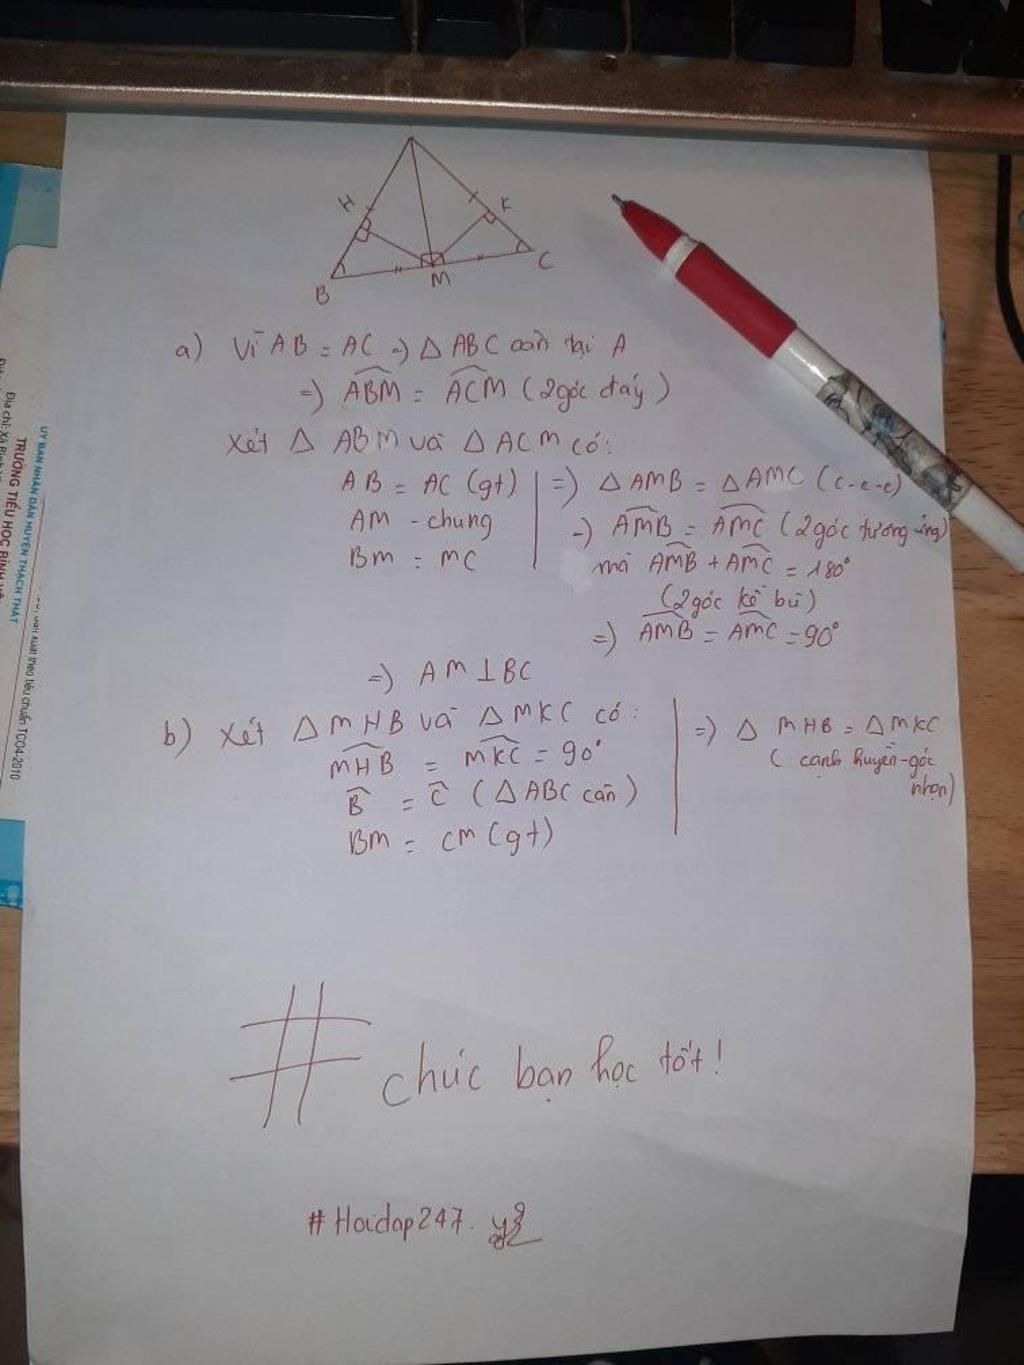 H
K
B
M
C
a) Vì AB = AC => △ ABC cân tại A
=> ABM = ACM (2góc đáy)
Xét △ ABM và △ ACM có:
AB = AC (gt) => △ AMB = △AMC (c-c-c)
AM - chung => AMB = AMC (2góc tương ứng)
BM = MC mà AMB + AMC = 180°
(2góc kề bù)
=> AMB = AMC = 90°
=> AM ⊥ BC
b) Xét △MHB và △MKC có: => △ MHB = △MKC
MHB = MKC = 90° ( cạnh huyền-góc
B = C (△ABC cân) nhọn)
BM = CM (gt)
# chúc bạn học tốt!
#Hoidap247.
UỶ BAN NHÂN DÂN HUYỆN THẠCH THẤT
TRƯỜNG TIỂU HỌC BÌNH
Địa chỉ: Xã Bình
xuất theo tiêu chuẩn TC04-2010